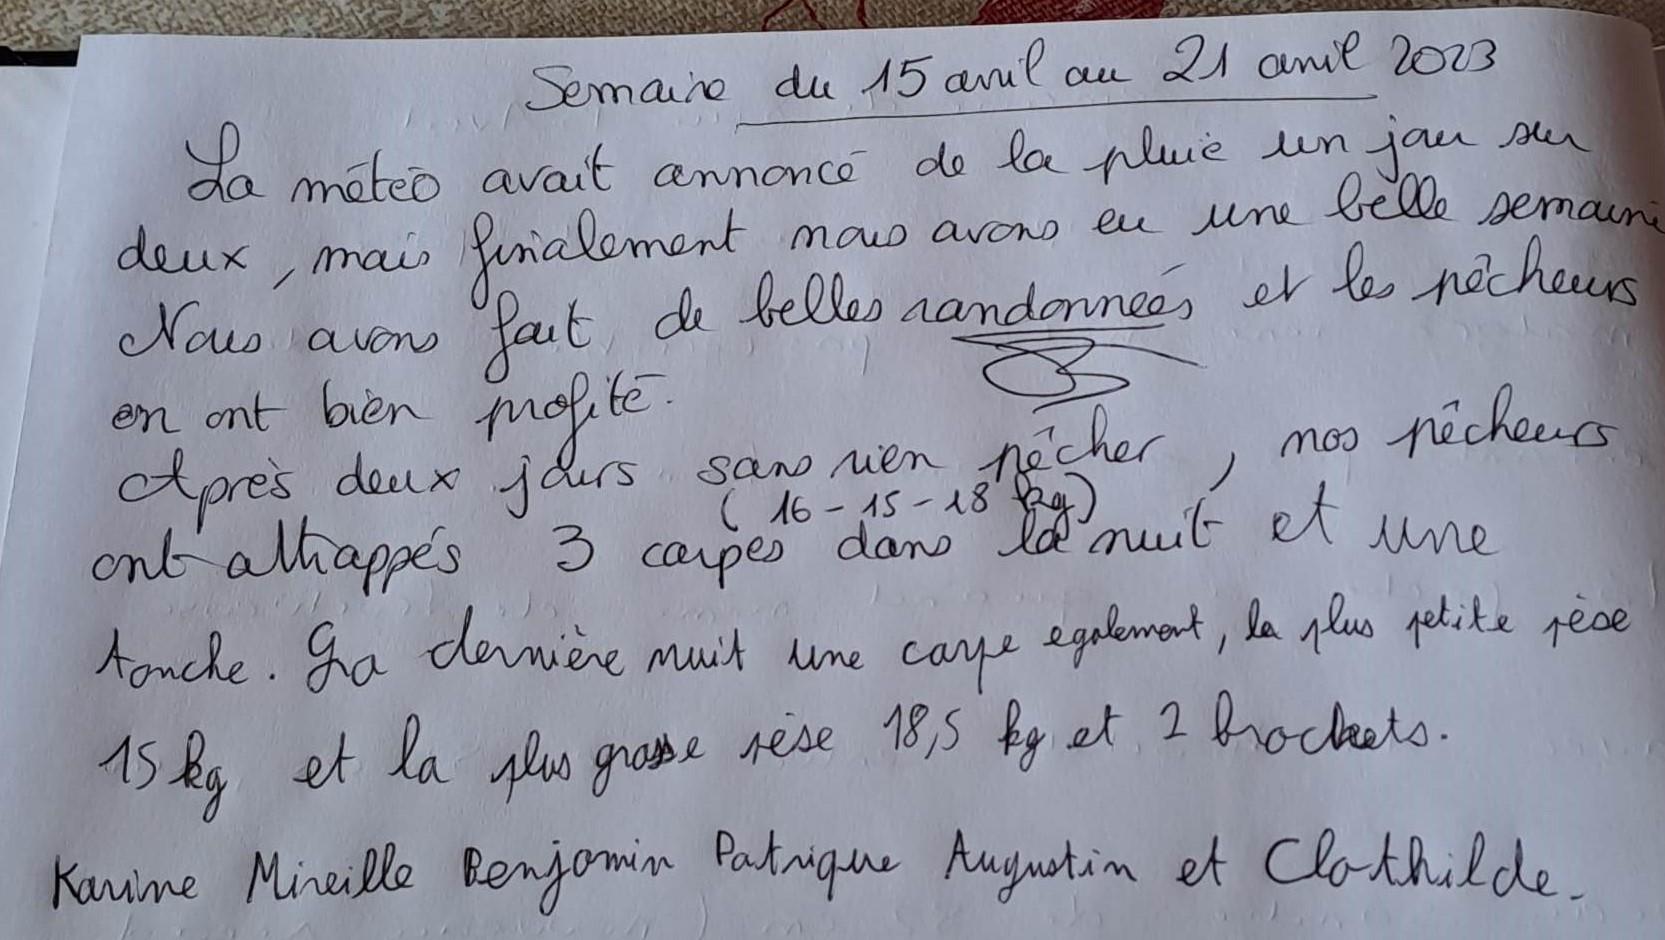 Semaine du 15 avril au 21 avril 2023
La météo avait annoncé de la pluie un jour sur
deux, mais finalement nous avons eu une belle semaine
Nous avons fait de belles randonnées et les pêcheurs
en ont bien profité.
Après deux jours sans rien pêcher, nos pêcheurs
(16-15-18 kg)
ont attrappés 3 carpes dans la nuit et une
tanche. La dernière nuit une carpe egalement, la plus petite pèse
15 kg et la plus grosse pèse 18,5 kg et 2 brochets.
Karine Mireille Benjamin Patrique Augustin et Clothilde.